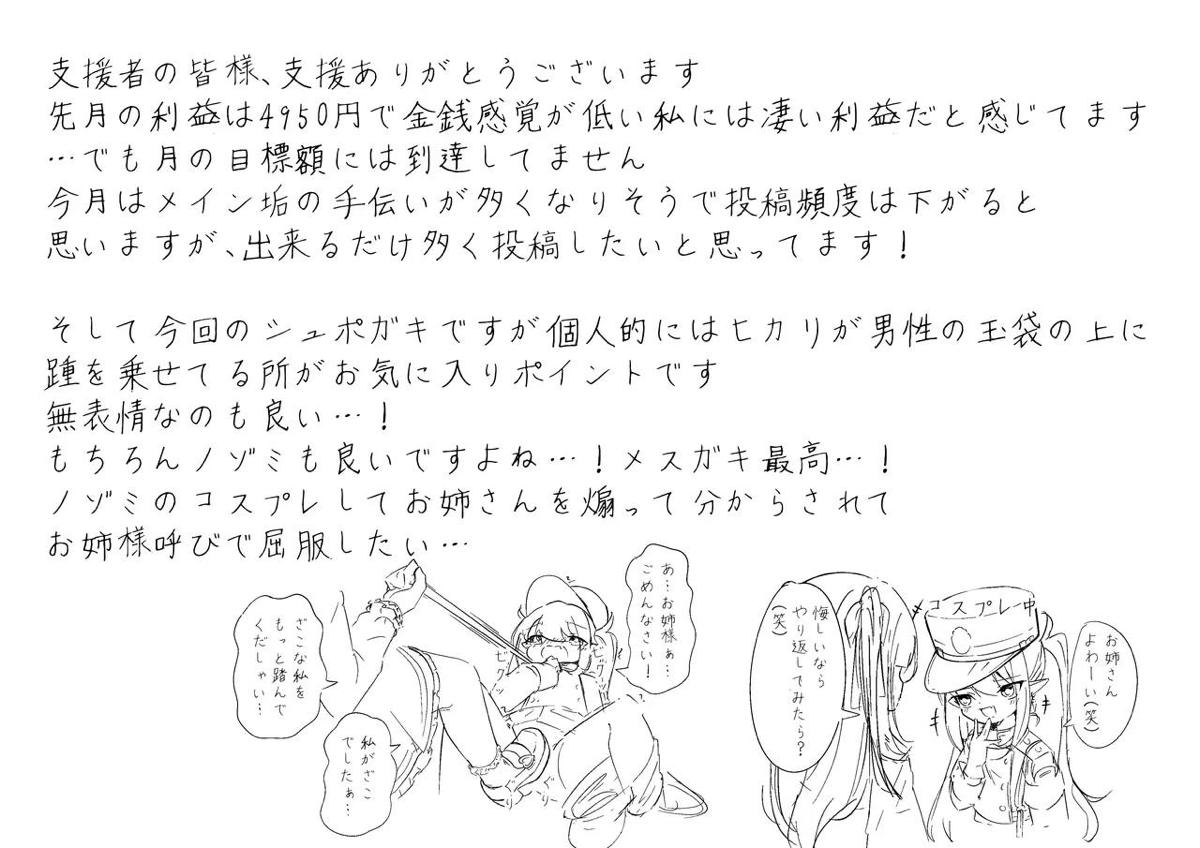 支援者の皆様、支援ありがとうございます
先月の利益は4950円で金銭感覚が低い私には凄い利益だと感じてます
…でも月の目標額には到達してません
今月はメイン垢の手伝いが多くなりそうで投稿頻度は下がると
思いますが、出来るだけ多く投稿したいと思ってます！
そして今回のシュポガキですが個人的にはヒカリが男性の玉袋の上に
踵を乗せてる所がお気に入りポイントです
無表情なのも良い…！
もちろんノゾミも良いですよね…！メスガキ最高…！
ノゾミのコスプレしてお姉さんを煽って分からされて
お姉様呼びで屈服したい…
コスプレ中
お姉さん
よわーい(笑)
悔しいなら
やり返してみたら？
(笑)
あ…お姉様ぁ…
ごめんなさい！
ざこな私を
もっと踏んで
くだしゃい…
私がざこ
でしたぁ…